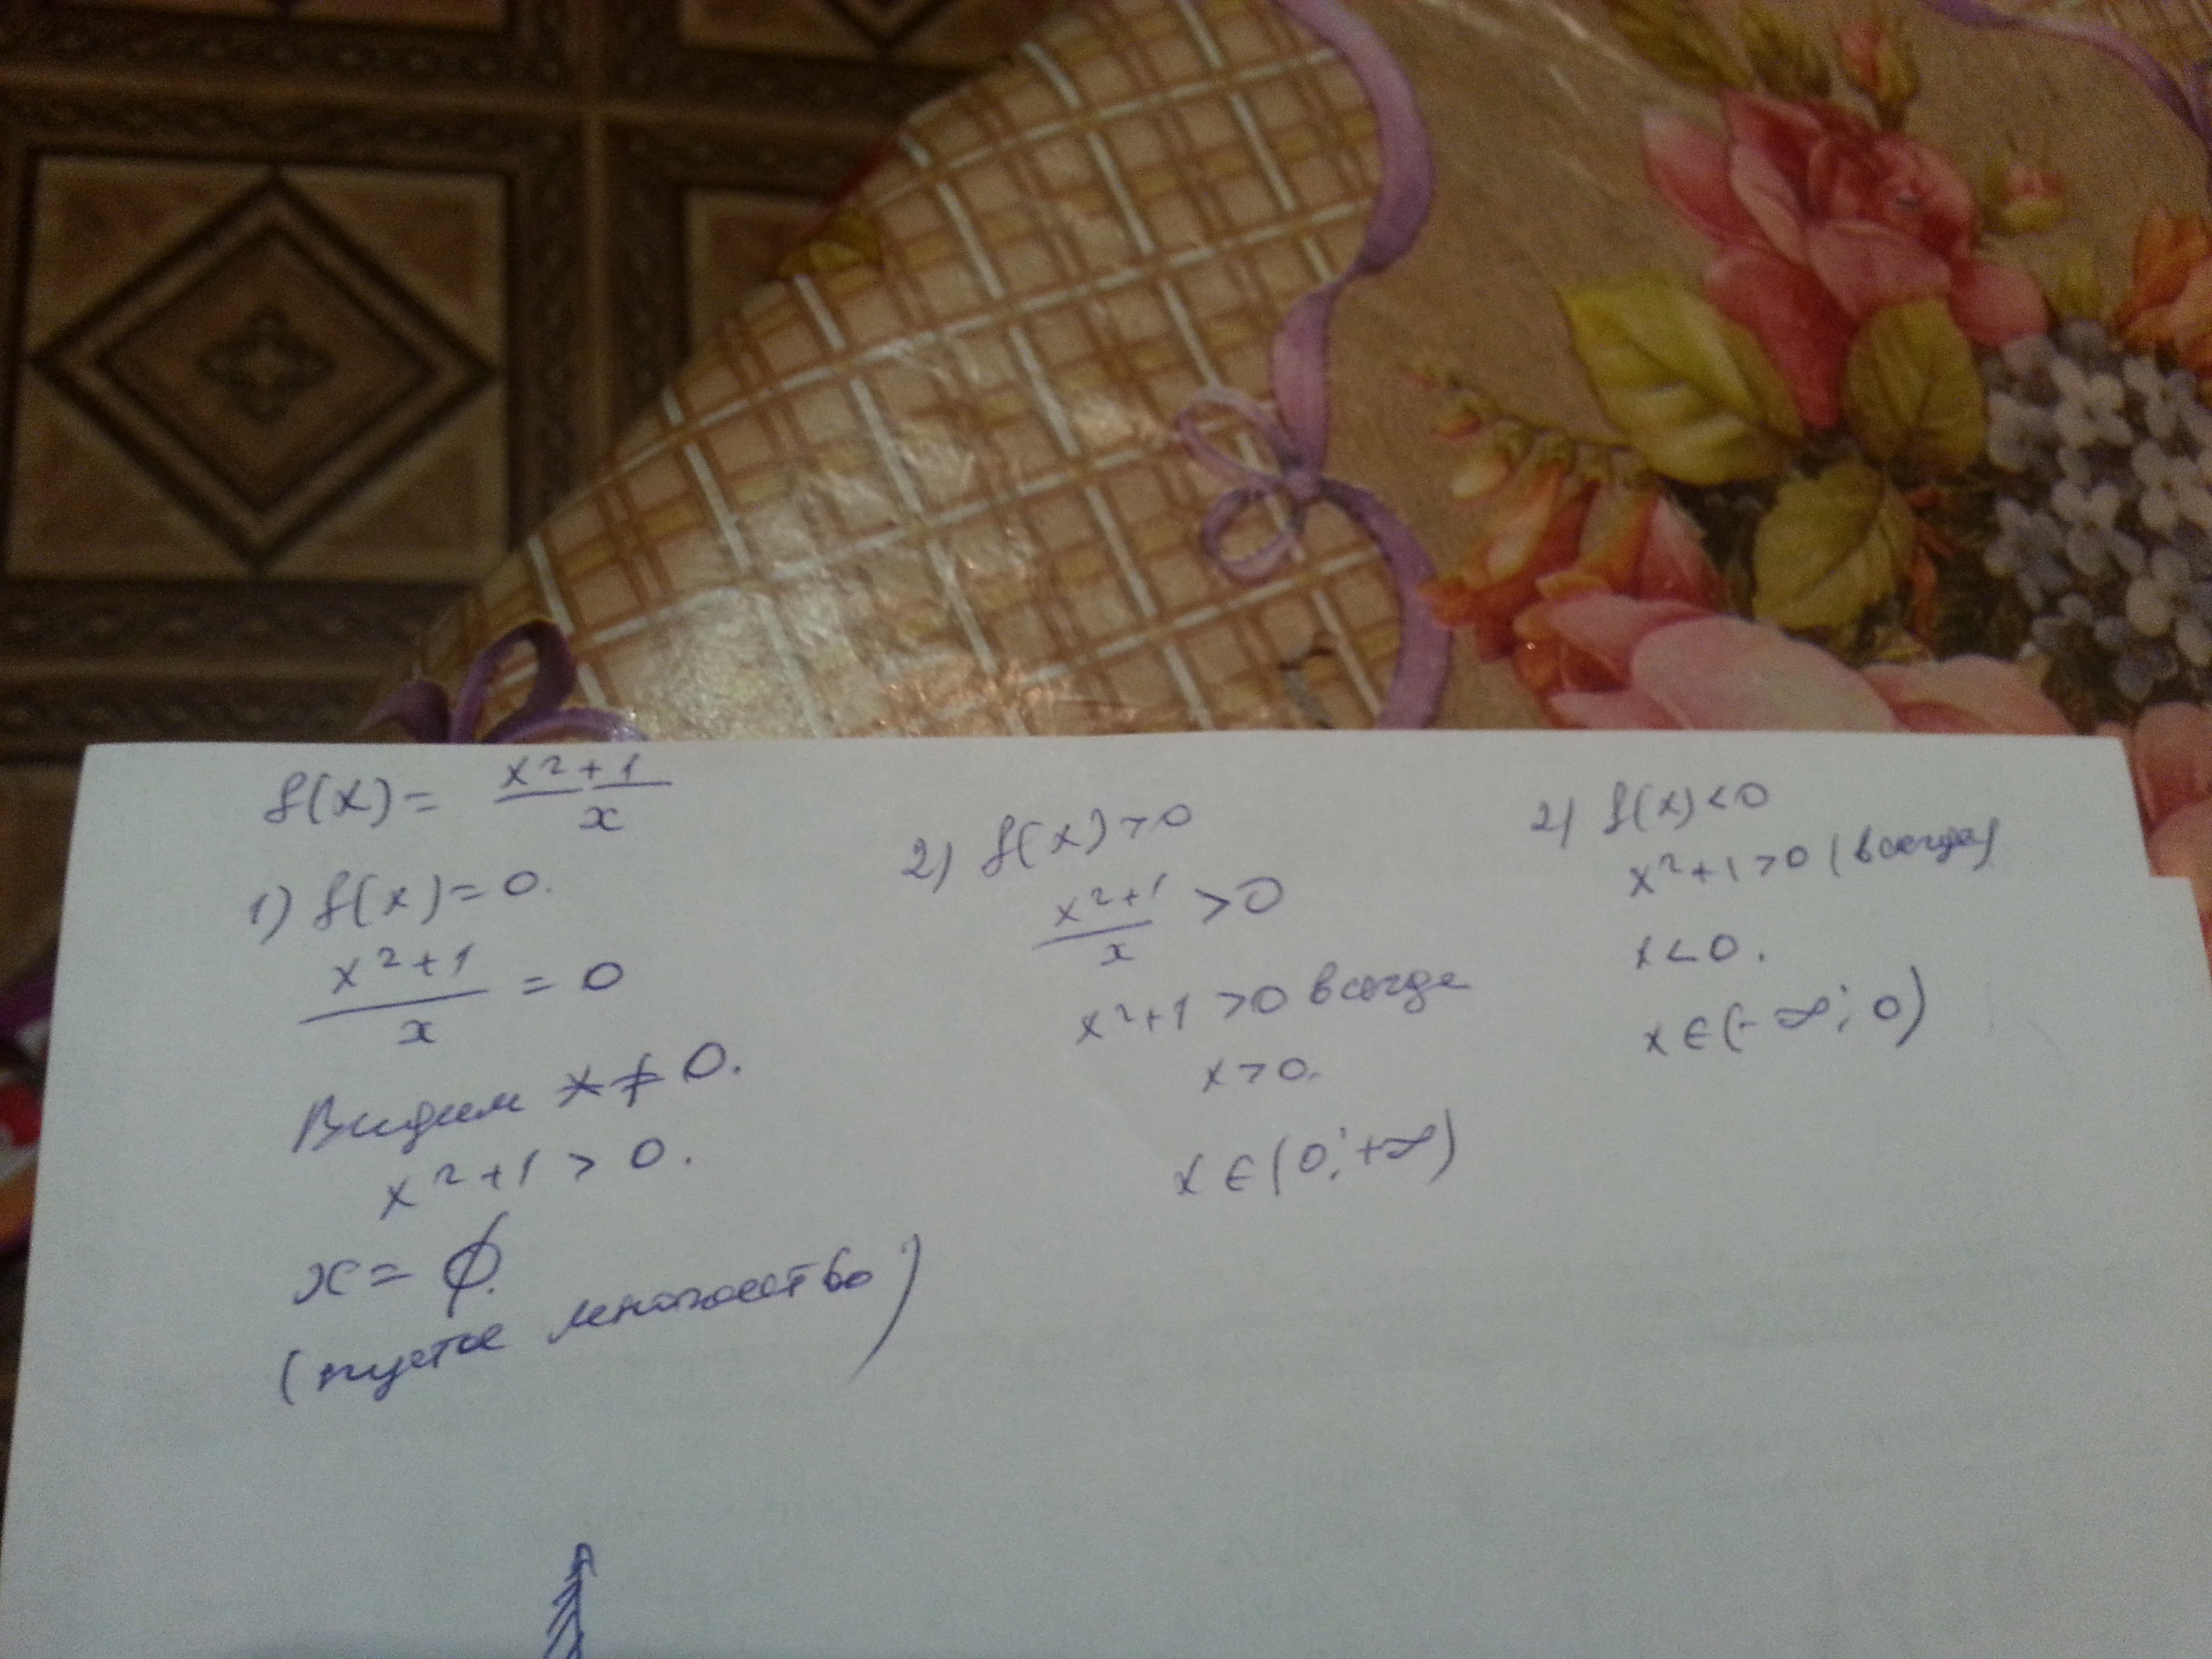 f(x) = x²+1 / x
1) f(x) = 0.
x²+1 / x = 0
Видим x ≠ 0.
x²+1 > 0.
x = ∅.
(пустое множество)
2) f(x) > 0
x²+1 / x > 0
x²+1 > 0 всегда
x > 0.
x ∈ (0; +∞)
2) f(x) < 0
x²+1 > 0 (всегда)
x < 0.
x ∈ (-∞; 0)